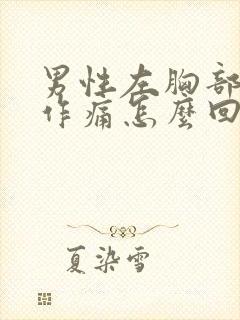 男性左胸部
作痛怎麼回
夏染雪